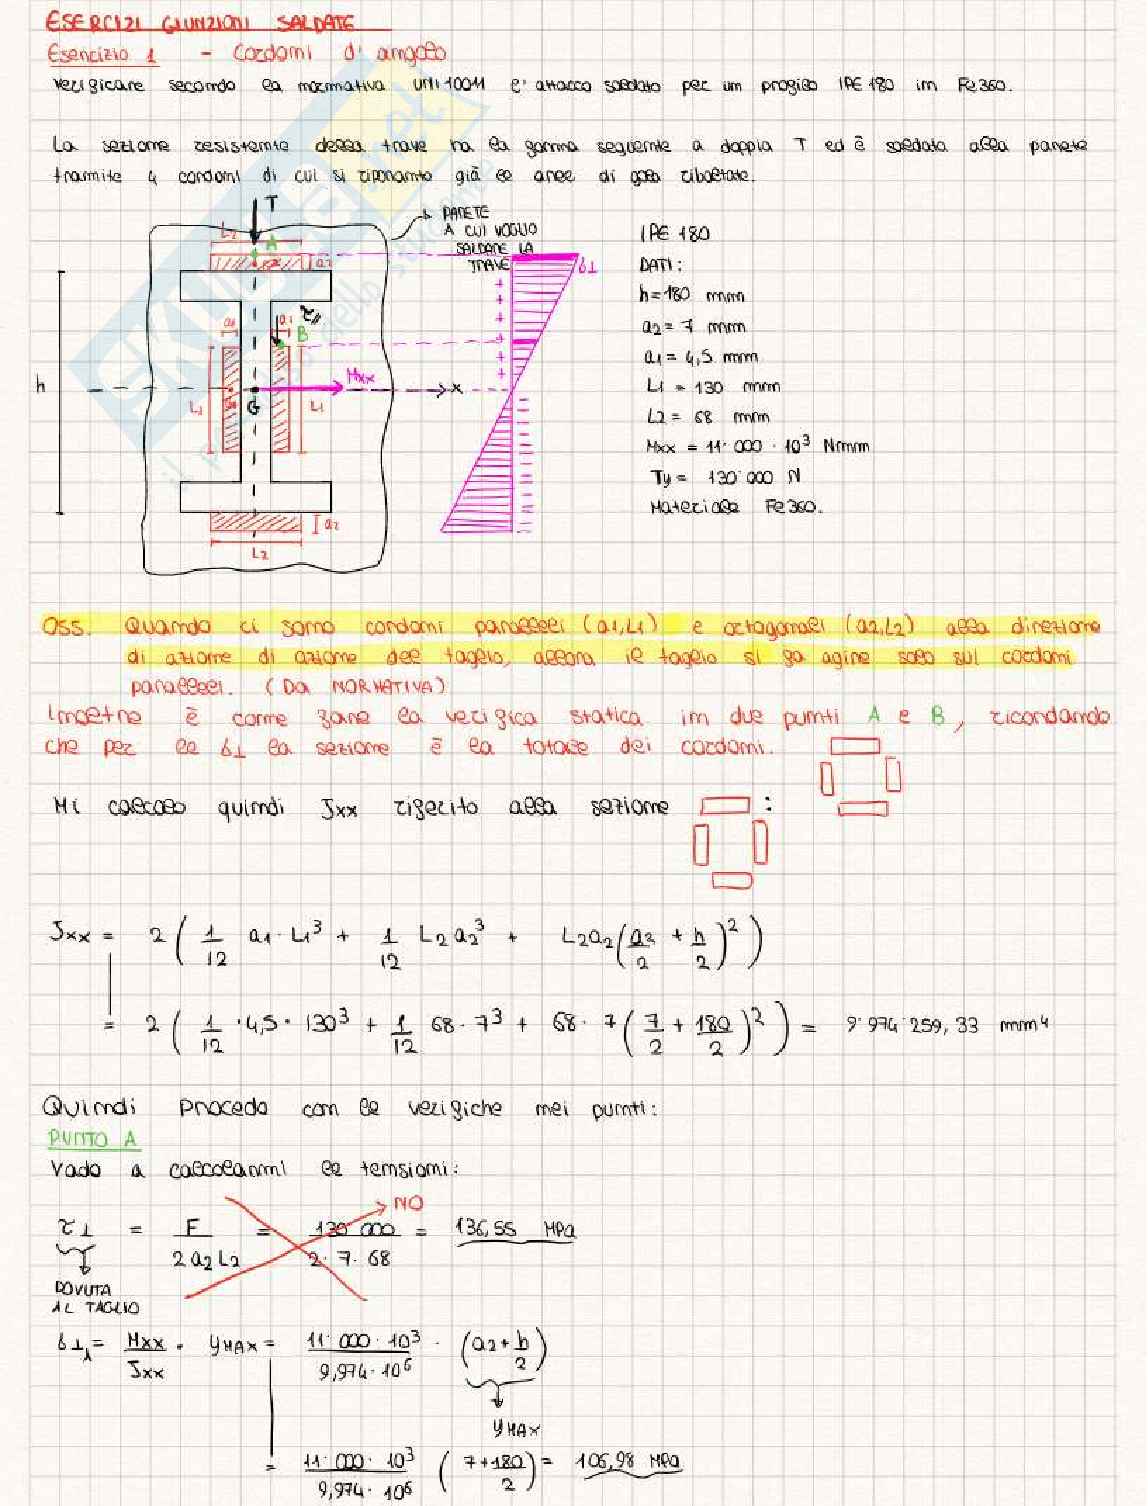 ESERCIZI GIUNZIONI SALDATE
Esercizio 1 - Cordoni d'angolo
Verificare secondo la normativa UNI 10011 l'attacco saldato per un profilo IPE 180 in Fe360.
La sezione resistente della trave ha la forma seguente a doppia T ed è saldata alla parete
tramite 4 cordoni di cui si riportano già le aree di gola ribaltate.
T
L2
A
a2
PARETE
A CUI VOGLIO
SALDARE LA
TRAVE
σ⊥
IPE 180
DATI:
h = 180 mm
a2 = 7 mm
a1 = 4,5 mm
L1 = 130 mm
L2 = 68 mm
Mxx = 11'000 · 10³ Nmm
Ty = 130'000 N
Materiale Fe360.
a1
τ//
a1
B
h
Mxx
x
G
L1
L1
a2
L2
OSS. Quando ci sono cordoni paralleli (a1,L1) e ortogonali (a2,L2) alla direzione
di azione di azione del taglio, allora il taglio si fa agire solo sui cordoni
paralleli. (DA NORMATIVA)
Inoltre è come fare la verifica statica in due punti A e B, ricordando
che per le σ⊥ la sezione è la totale dei cordoni.
Mi calcolo quindi Jxx riferito alla sezione :
Jxx = 2 ( 1/12 a1 · L1³ + 1/12 L2 a2³ + L2 a2 ( a2/2 + h/2 )² )
= 2 ( 1/12 · 4,5 · 130³ + 1/12 68 · 7³ + 68 · 7 ( 7/2 + 180/2 )² ) = 9'974'259,33 mm⁴
Quindi procedo con le verifiche nei punti:
PUNTO A
Vado a calcolarmi le tensioni:
τ⊥ = F / 2 a2 L2 = 130'000 / 2 · 7 · 68 = 136,55 MPa
NO
DOVUTA
AL TAGLIO
σ⊥A = Mxx / Jxx · yMAX = 11'000 · 10³ / 9,974 · 10⁶ · ( a2 + h/2 )
yMAX
= 11'000 · 10³ / 9,974 · 10⁶ ( 7 + 180/2 ) = 106,98 MPa